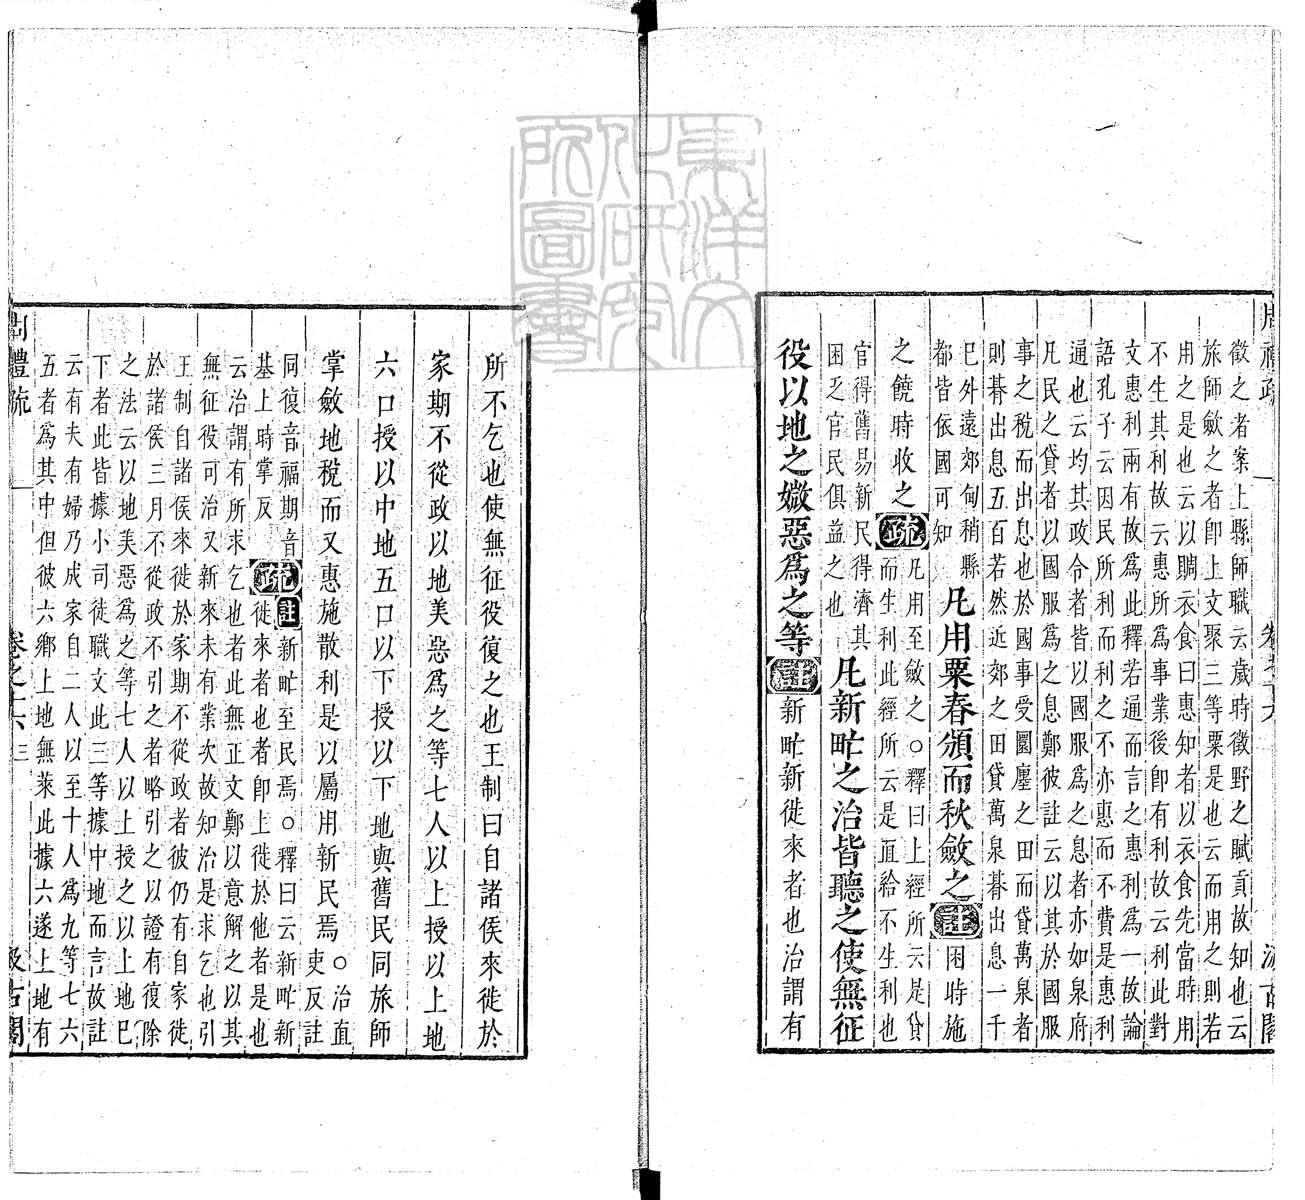 徵之者案上縣師職云歲時徵野之賦貢故知也云
旅師斂之者卽上文聚三等粟是也云而用之則若
用之是也云以賙衣食曰惠知者以衣食先當時用
不生其利故云惠所爲事業後卽有利故云利此對
文惠利兩有故爲此釋若通而言之惠利爲一故論
語孔子云因民所利而利之不亦惠而不費是惠利
通也云均其政令者皆以國服爲之息者亦如泉府
凡民之貸者以國服爲之息鄭彼註云以其於國服
事之稅而出息也於國事受園廛之田而貸萬泉者
則朞出息五百若然近郊之田貸萬泉朞出息一千
巳外遠郊甸稍縣
都皆依國可知
凡用粟春頒而秋斂之
註
困時施
之饒時收之
疏
凡用至斂之○釋曰上經所云是貸
而生利此經所云是直給不生利也
官得舊易新民得濟其
困乏官民俱益之也
凡新甿之治皆聽之使無征
役以地之媺惡爲之等
註
新甿新徙來者也治謂有
所不乞也使無征役復之也王制曰自諸侯來徙於
家期不從政以地美惡爲之等七人以上授以上地
六口授以中地五口以下授以下地與舊民同旅師
掌斂地稅而又惠施散利是以屬用新民焉
○治直
吏反註
同復音福期音
基上時掌反
疏
註
新甿至民焉○釋曰云新甿新
徙來者也者卽上徙於他者是也
云治謂有所求乞也者此無正文鄭以意解之以其
無征役可治又新來未有業次故知治是求乞也引
王制自諸侯來徙於家期不從政者彼仍有自家徙
於諸侯三月不從政不引之者略引之以證有復除
之法云以地美惡爲之等七人以上授之以上地巳
下者此皆據小司徒職文此三等據中地而言故註
云有夫有婦乃成家自二人以至十人爲九等七六
五者爲其中但彼六鄉上地無萊此據六遂上地有
禮疏
卷之十六
三
汲古閣